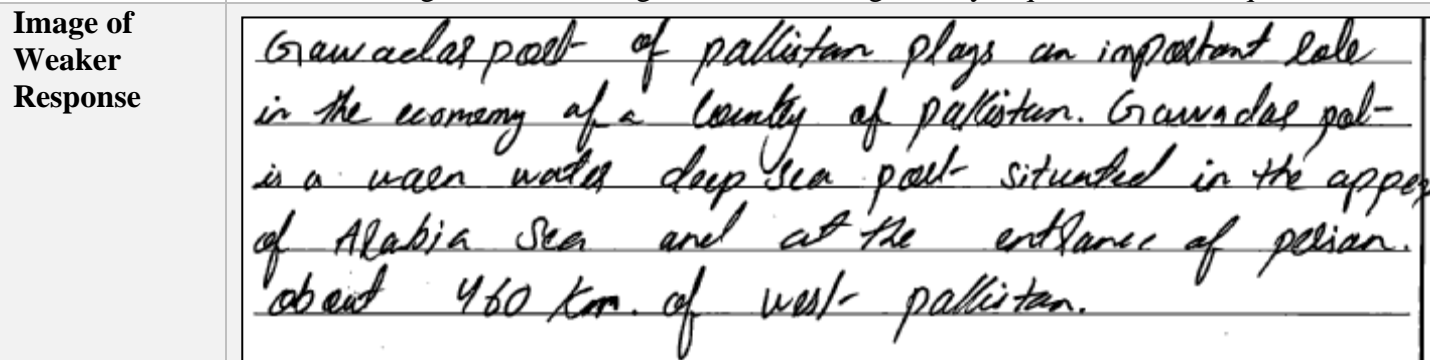 Image of
Weaker
Response
Gawadar port of pakistan plays an important role
in the economy of a country of pakistan. Gawadar port
is a warn water deep sea port situated in the apper
of Arabia Sea and at the entrance of persian.
about 460 Km. of west pakistan.